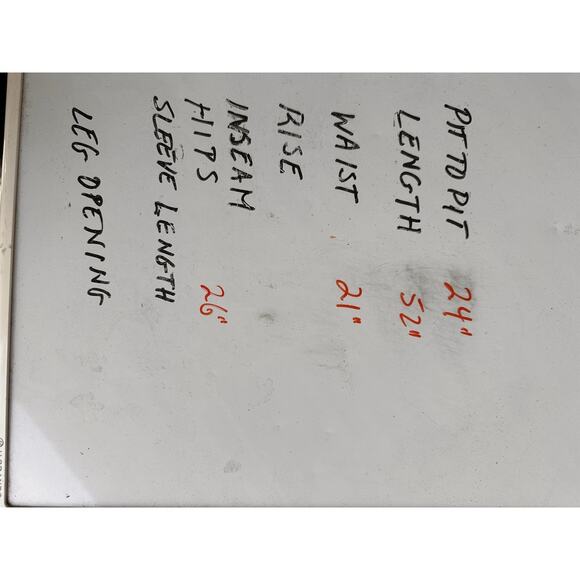 PIT TO PIT 24"
LENGTH 52"
WAIST 21"
RISE
INSEAM
HIPS 26"
SLEEVE LENGTH
LEG OPENING